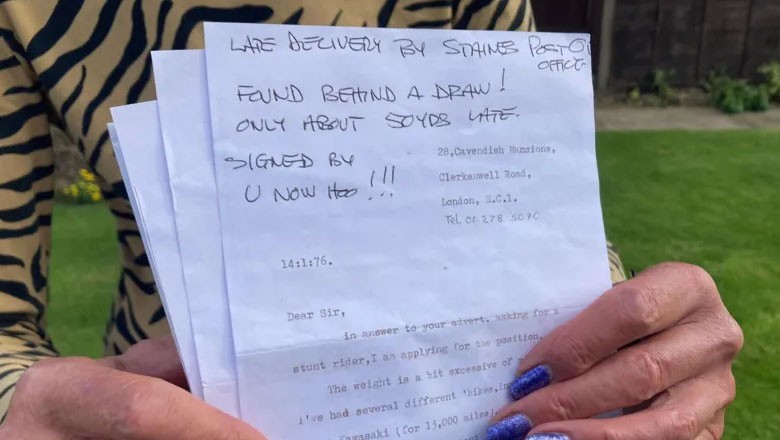 LATE DELIVERY BY STAINES POST
OFFICE
FOUND BEHIND A DRAW!
ONLY ABOUT 50YDS LATE.
SIGNED BY
U NOW HOO !!!
28,Cavendish Mansions,
Clerkenwell Road,
London, E.C.1.
Tel. 01 278 5070
14:1:76.
Dear Sir,
in answer to your advert. asking for a
stunt rider,I am applying for the position.
The weight is a bit excessive of
I've had several different 'bikes,
Kawasaki (for 15,000 miles)